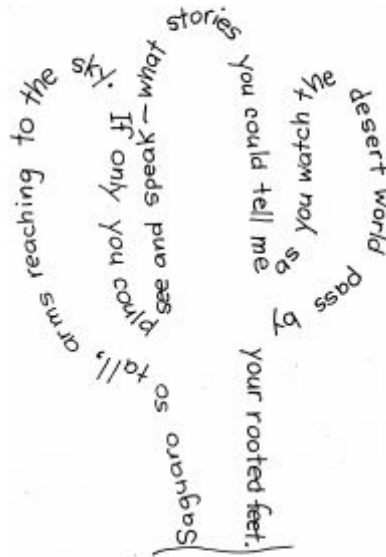 Saguaro so tall, arms reaching to the sky. If only you could see and speak – what stories you could tell me as you watch the desert world pass by your rooted feet.